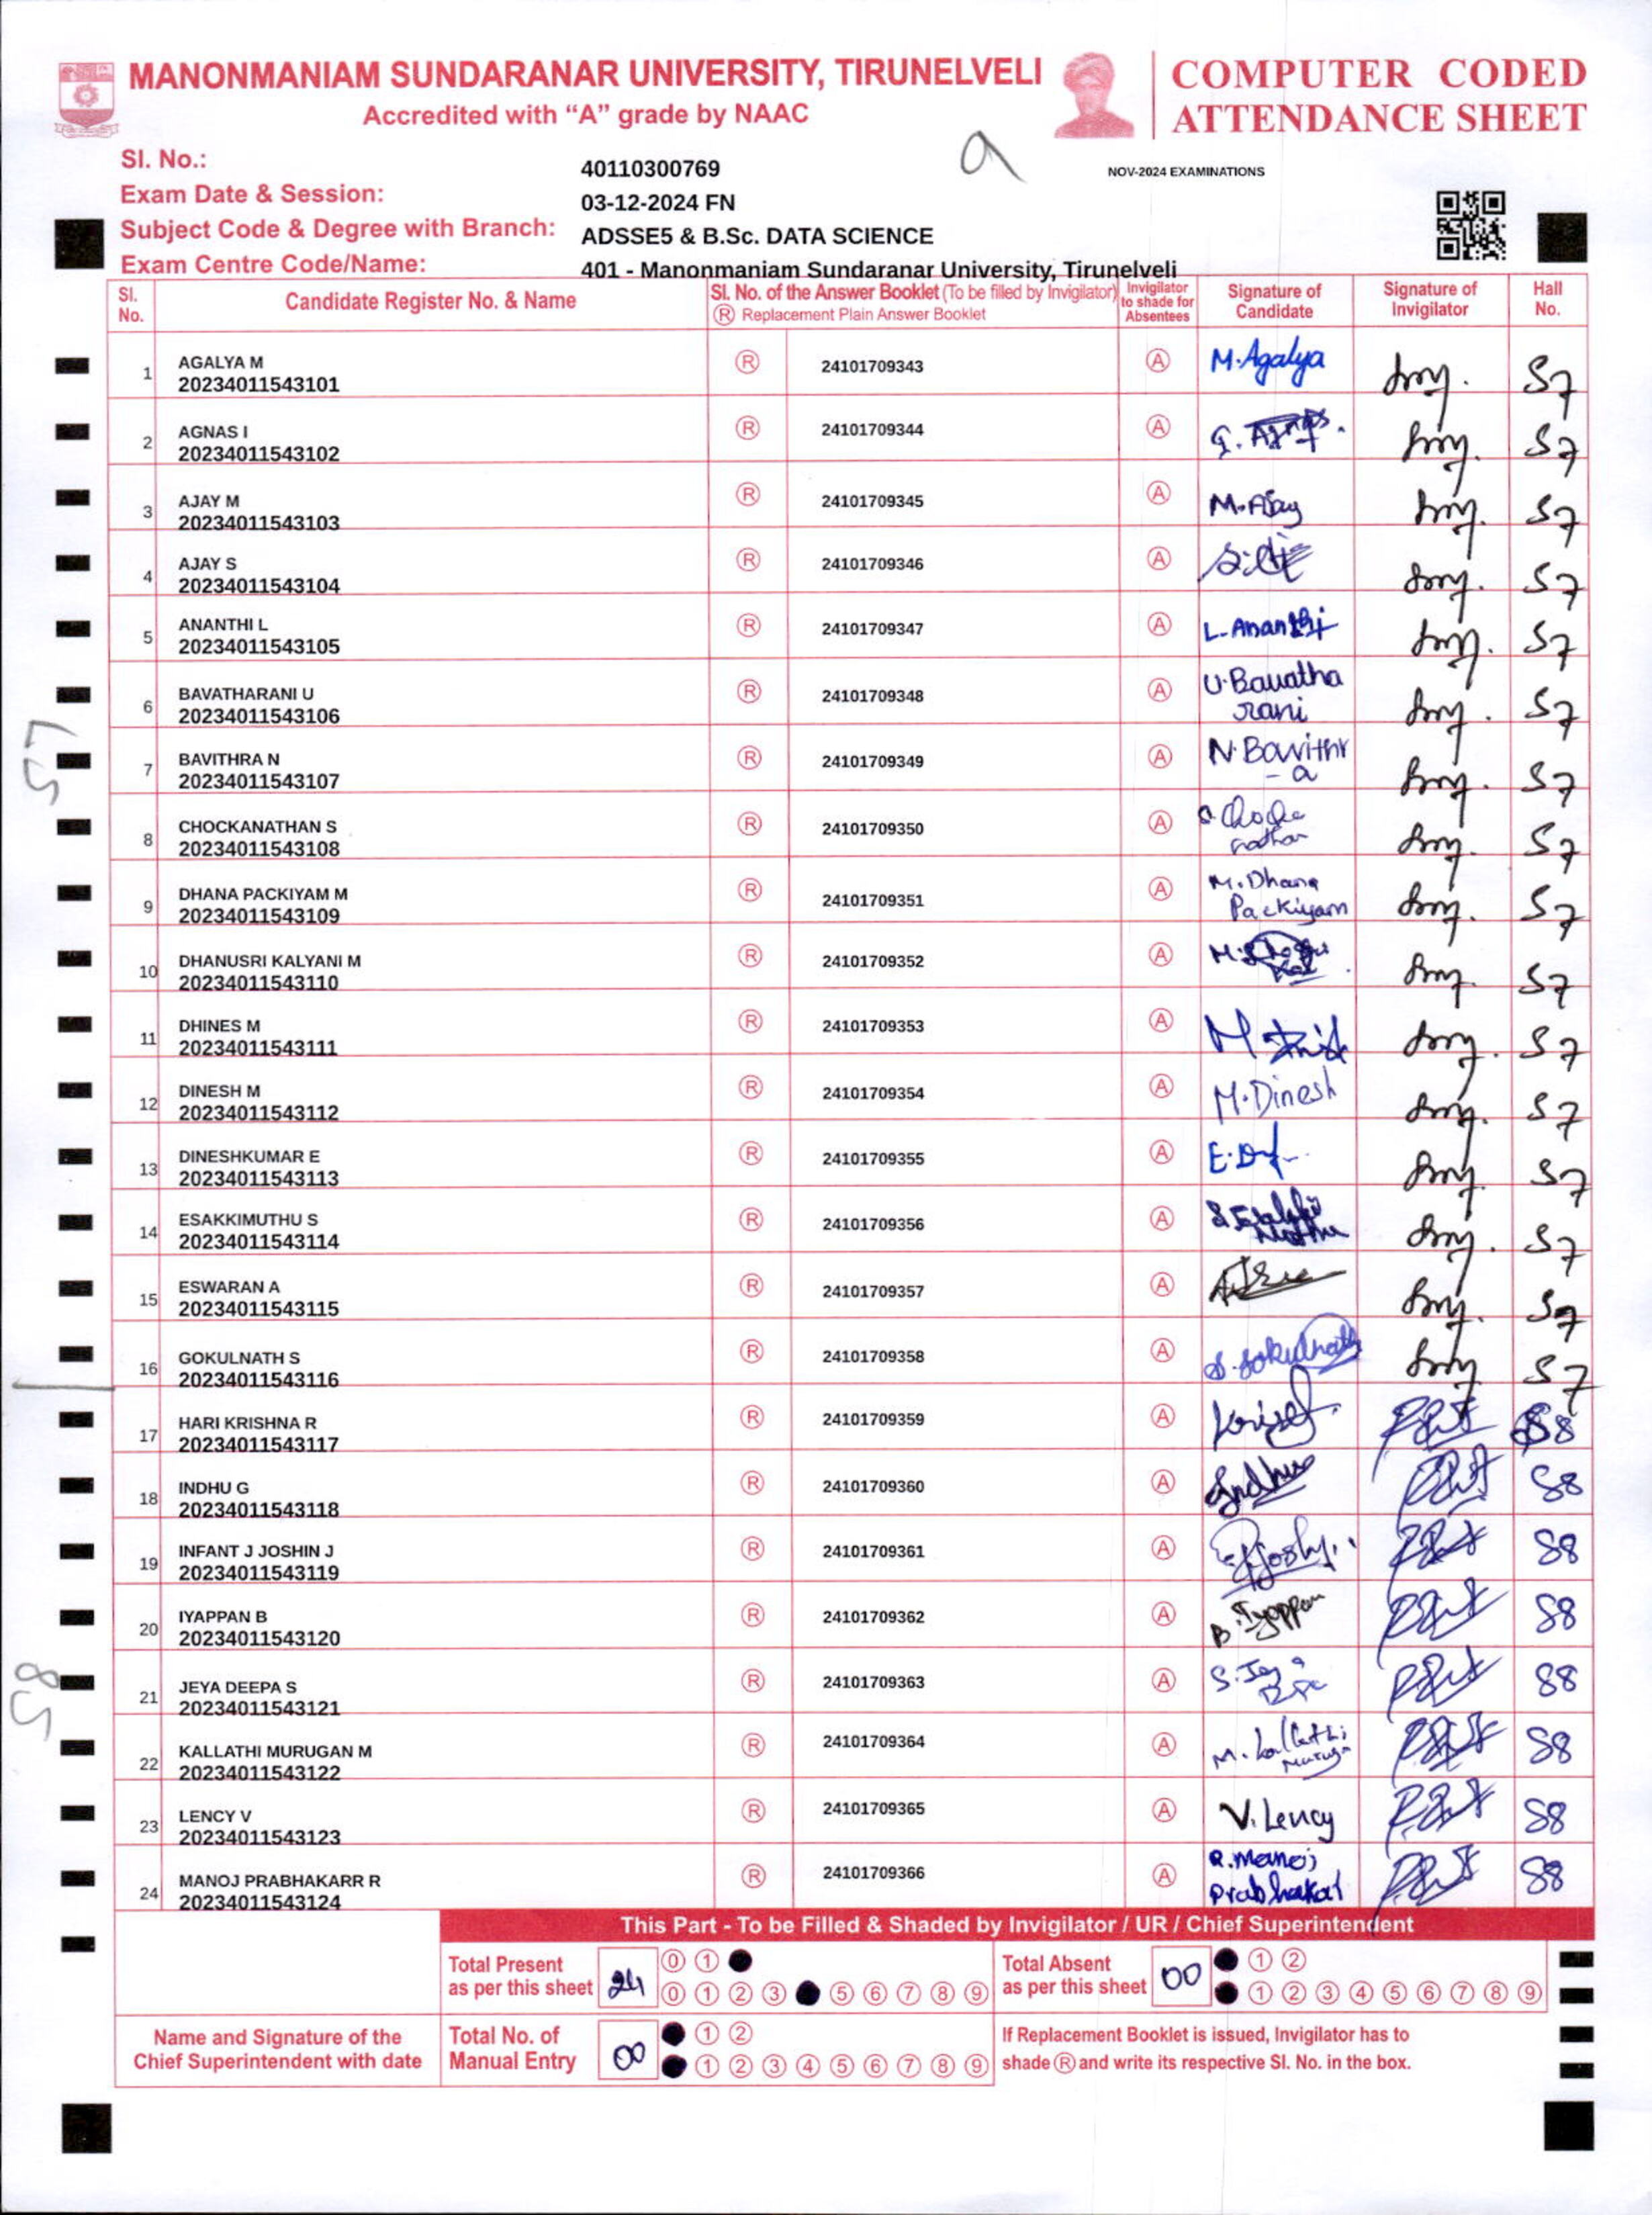 MANONMANIAM SUNDARANAR UNIVERSITY, TIRUNELVELI
Accredited with “A” grade by NAAC
COMPUTER CODED
ATTENDANCE SHEET
a
NOV-2024 EXAMINATIONS
Sl. No.: 40110300769
Exam Date & Session: 03-12-2024 FN
Subject Code & Degree with Branch: ADSSE5 & B.Sc. DATA SCIENCE
Exam Centre Code/Name: 401 - Manonmaniam Sundaranar University, Tirunelveli
Sl. No. Candidate Register No. & Name Sl. No. of the Answer Booklet (To be filled by Invigilator) Ⓡ Replacement Plain Answer Booklet Invigilator to shade for Absentees Signature of Candidate Signature of Invigilator Hall No.
1 AGALYA M 20234011543101 Ⓡ 24101709343 Ⓐ M.Agalya S7
2 AGNAS I 20234011543102 Ⓡ 24101709344 Ⓐ S7
3 AJAY M 20234011543103 Ⓡ 24101709345 Ⓐ M.Ajay S7
4 AJAY S 20234011543104 Ⓡ 24101709346 Ⓐ S7
5 ANANTHI L 20234011543105 Ⓡ 24101709347 Ⓐ L.Ananthi S7
6 BAVATHARANI U 20234011543106 Ⓡ 24101709348 Ⓐ U.Bavatha rani S7
7 BAVITHRA N 20234011543107 Ⓡ 24101709349 Ⓐ N.Bavithr -a S7
8 CHOCKANATHAN S 20234011543108 Ⓡ 24101709350 Ⓐ S7
9 DHANA PACKIYAM M 20234011543109 Ⓡ 24101709351 Ⓐ M.Dhana Packiyam S7
10 DHANUSRI KALYANI M 20234011543110 Ⓡ 24101709352 Ⓐ S7
11 DHINES M 20234011543111 Ⓡ 24101709353 Ⓐ S7
12 DINESH M 20234011543112 Ⓡ 24101709354 Ⓐ M.Dinesh S7
13 DINESHKUMAR E 20234011543113 Ⓡ 24101709355 Ⓐ S7
14 ESAKKIMUTHU S 20234011543114 Ⓡ 24101709356 Ⓐ S7
15 ESWARAN A 20234011543115 Ⓡ 24101709357 Ⓐ S7
16 GOKULNATH S 20234011543116 Ⓡ 24101709358 Ⓐ S.Gokulnath S7
17 HARI KRISHNA R 20234011543117 Ⓡ 24101709359 Ⓐ S8
18 INDHU G 20234011543118 Ⓡ 24101709360 Ⓐ Indhu S8
19 INFANT J JOSHIN J 20234011543119 Ⓡ 24101709361 Ⓐ S8
20 IYAPPAN B 20234011543120 Ⓡ 24101709362 Ⓐ B.Iyappan S8
21 JEYA DEEPA S 20234011543121 Ⓡ 24101709363 Ⓐ S8
22 KALLATHI MURUGAN M 20234011543122 Ⓡ 24101709364 Ⓐ M.Kallathi Murugan S8
23 LENCY V 20234011543123 Ⓡ 24101709365 Ⓐ V.Lency S8
24 MANOJ PRABHAKARR R 20234011543124 Ⓡ 24101709366 Ⓐ R.Manoj Prabhakar S8
S7
S8
This Part - To be Filled & Shaded by Invigilator / UR / Chief Superintendent
Total Present as per this sheet 24
⓪ ①
⓪ ① ② ③ ⑤ ⑥ ⑦ ⑧ ⑨
Total Absent as per this sheet 00
① ②
① ② ③ ④ ⑤ ⑥ ⑦ ⑧ ⑨
Name and Signature of the Chief Superintendent with date
Total No. of Manual Entry 00
① ②
① ② ③ ④ ⑤ ⑥ ⑦ ⑧ ⑨
If Replacement Booklet is issued, Invigilator has to
shade Ⓡ and write its respective Sl. No. in the box.